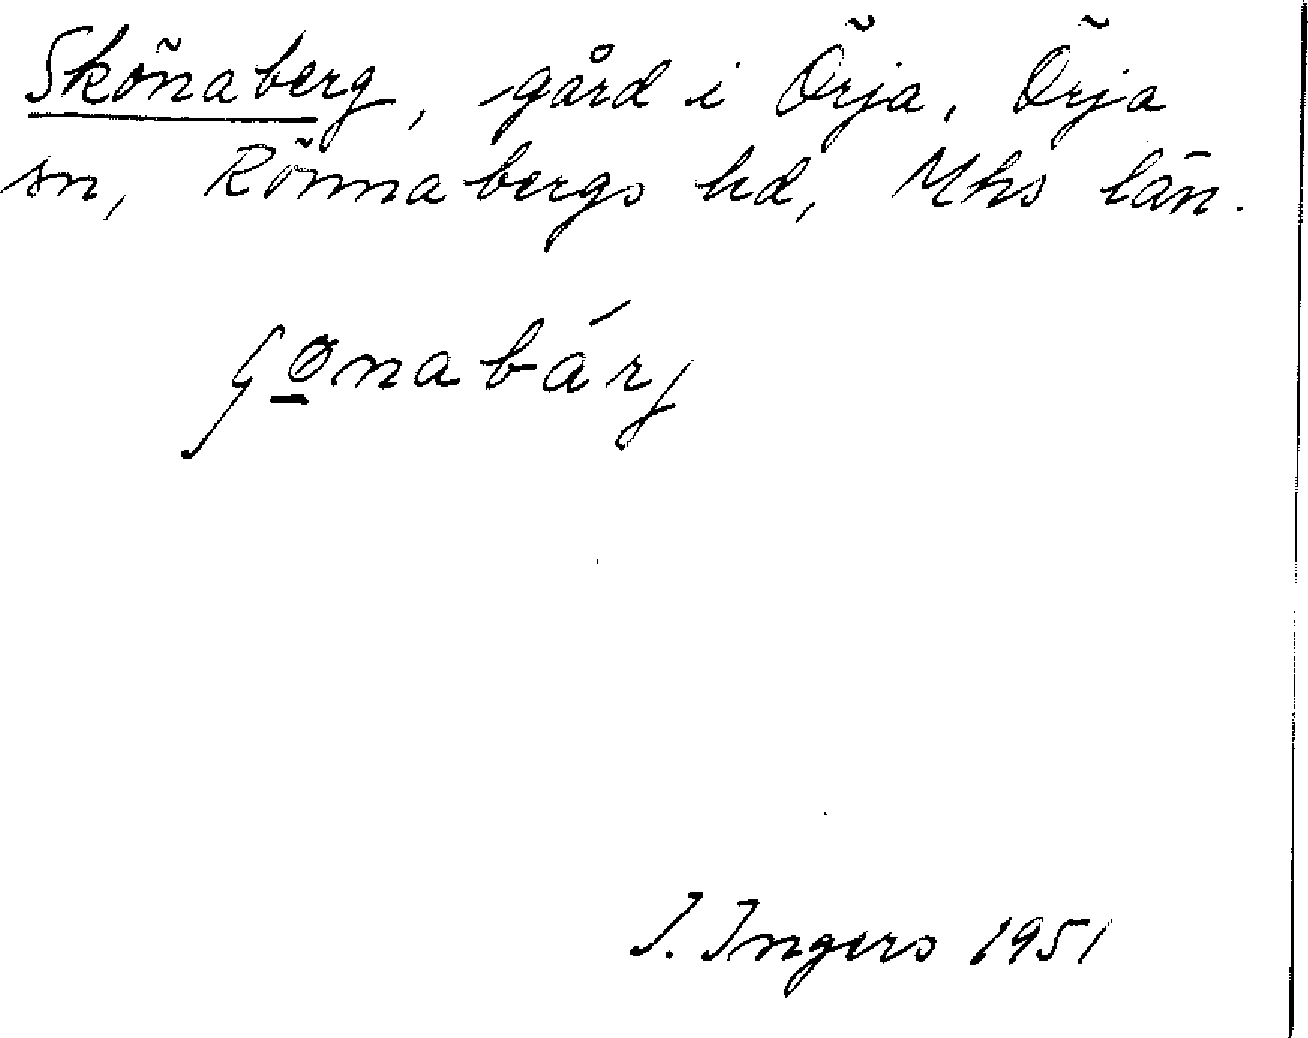 Skönaberg, gård i Örja, Örja
sn, Rönnabergs hd, Mhs län.
ʃø̱nabárj
J. Ingers 1951